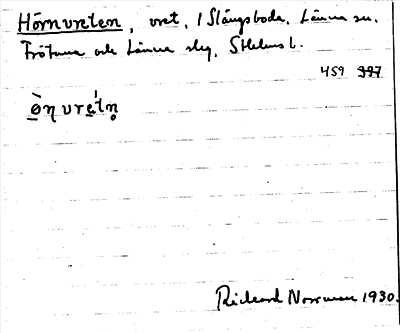 Hörnvreten, vret, 1 Slängsboda, Länna sn.
Frötuna och Länna slg, Sthlms l.
459 397
ò̱ŋvrét̥ṇ
Richard Norrman 1930.